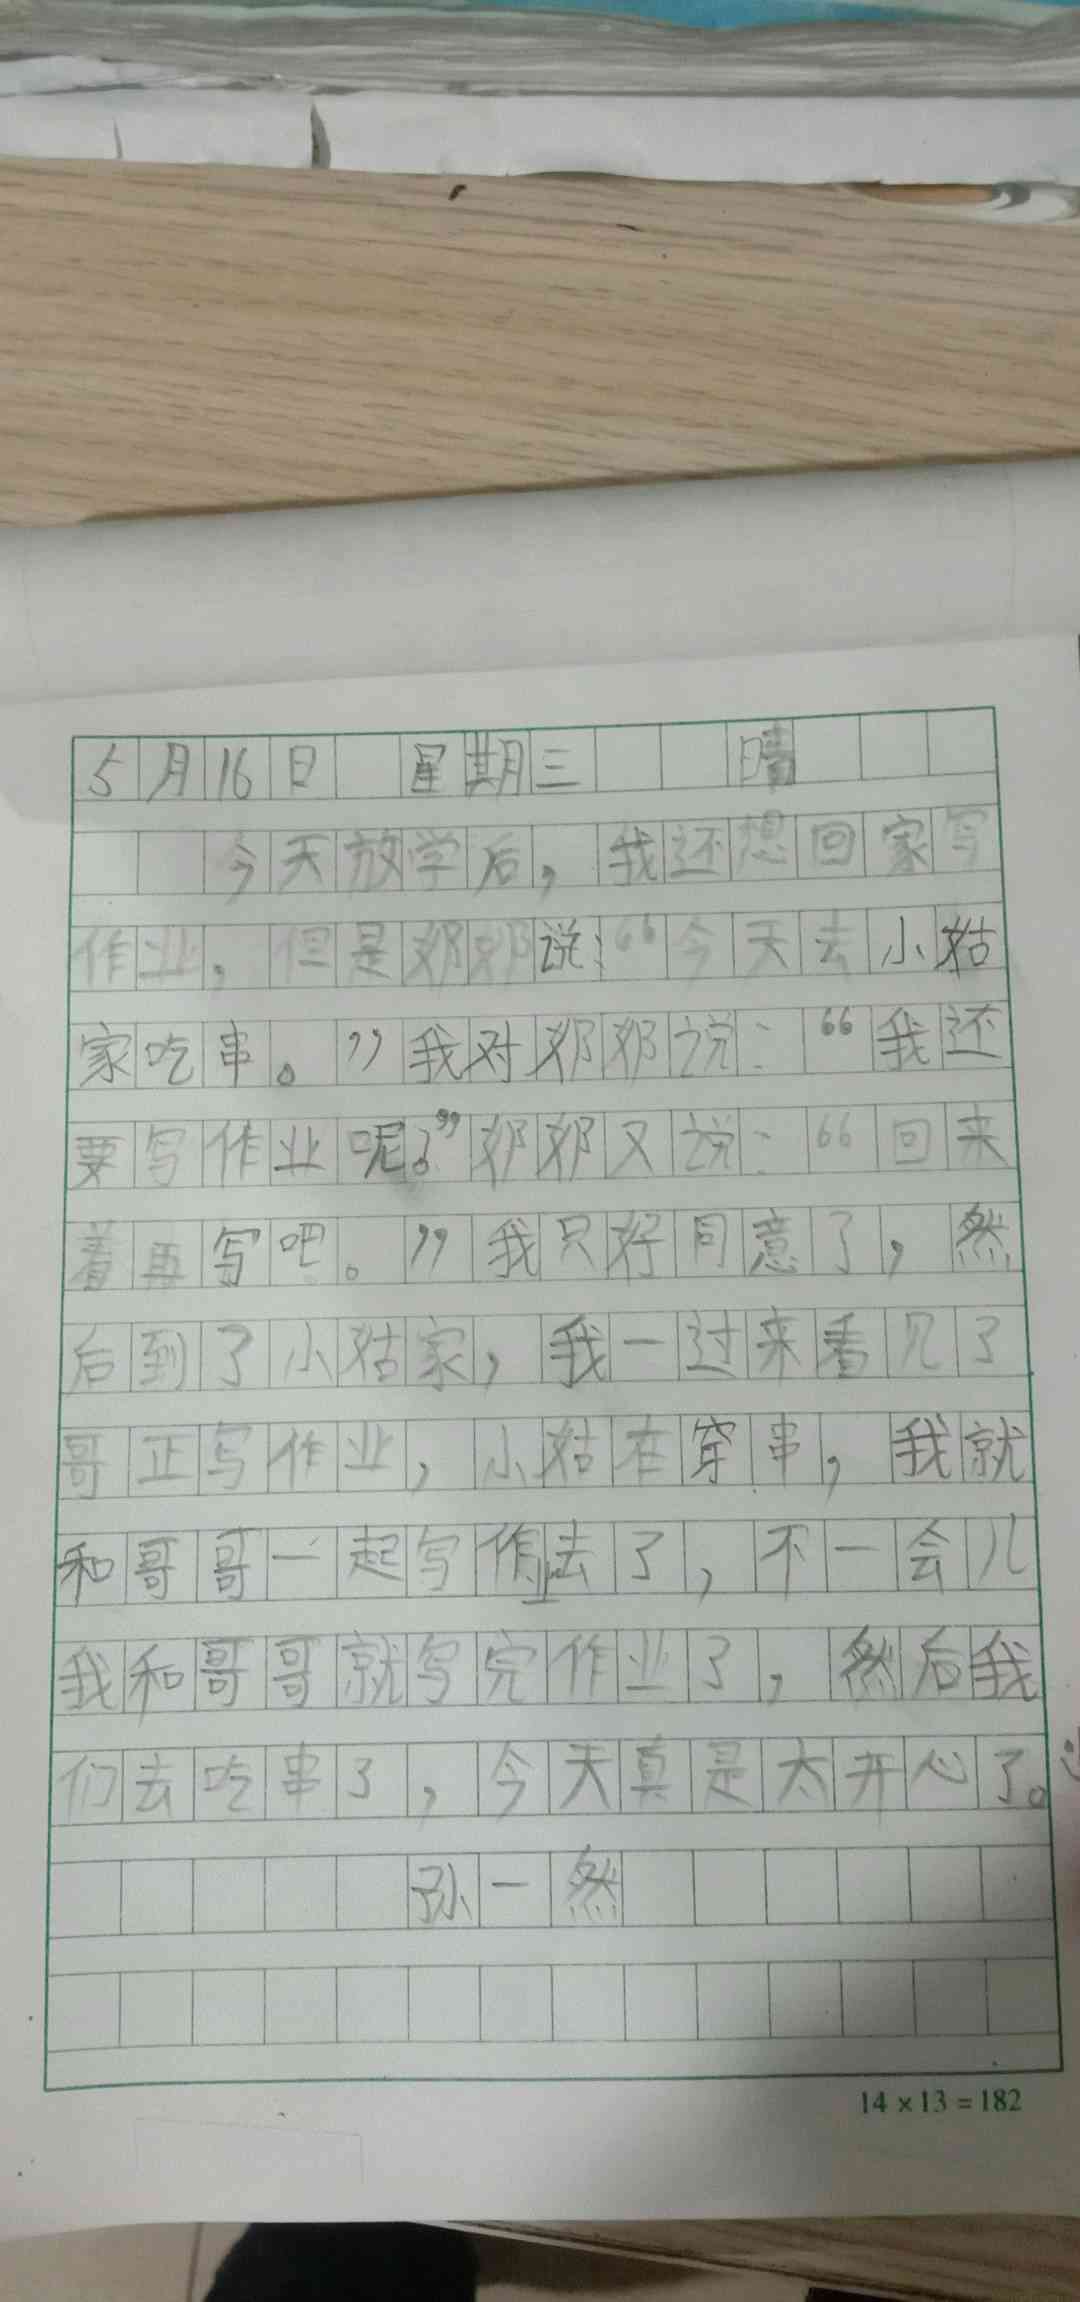 5月16日 星期三 晴
今天放学后，我还想回家写
作业，但是奶奶说：“今天去小姑
家吃串。”我对奶奶说：“我还
要写作业呢。”奶奶又说：“回来
着再写吧。”我只好同意了，然
后到了小姑家，我一过来看见了
哥正写作业，小姑在穿串，我就
和哥哥一起写作业去了，不一会儿
我和哥哥就写完作业了，然后我
们去吃串了，今天真是太开心了。
孙一然
14×13=182